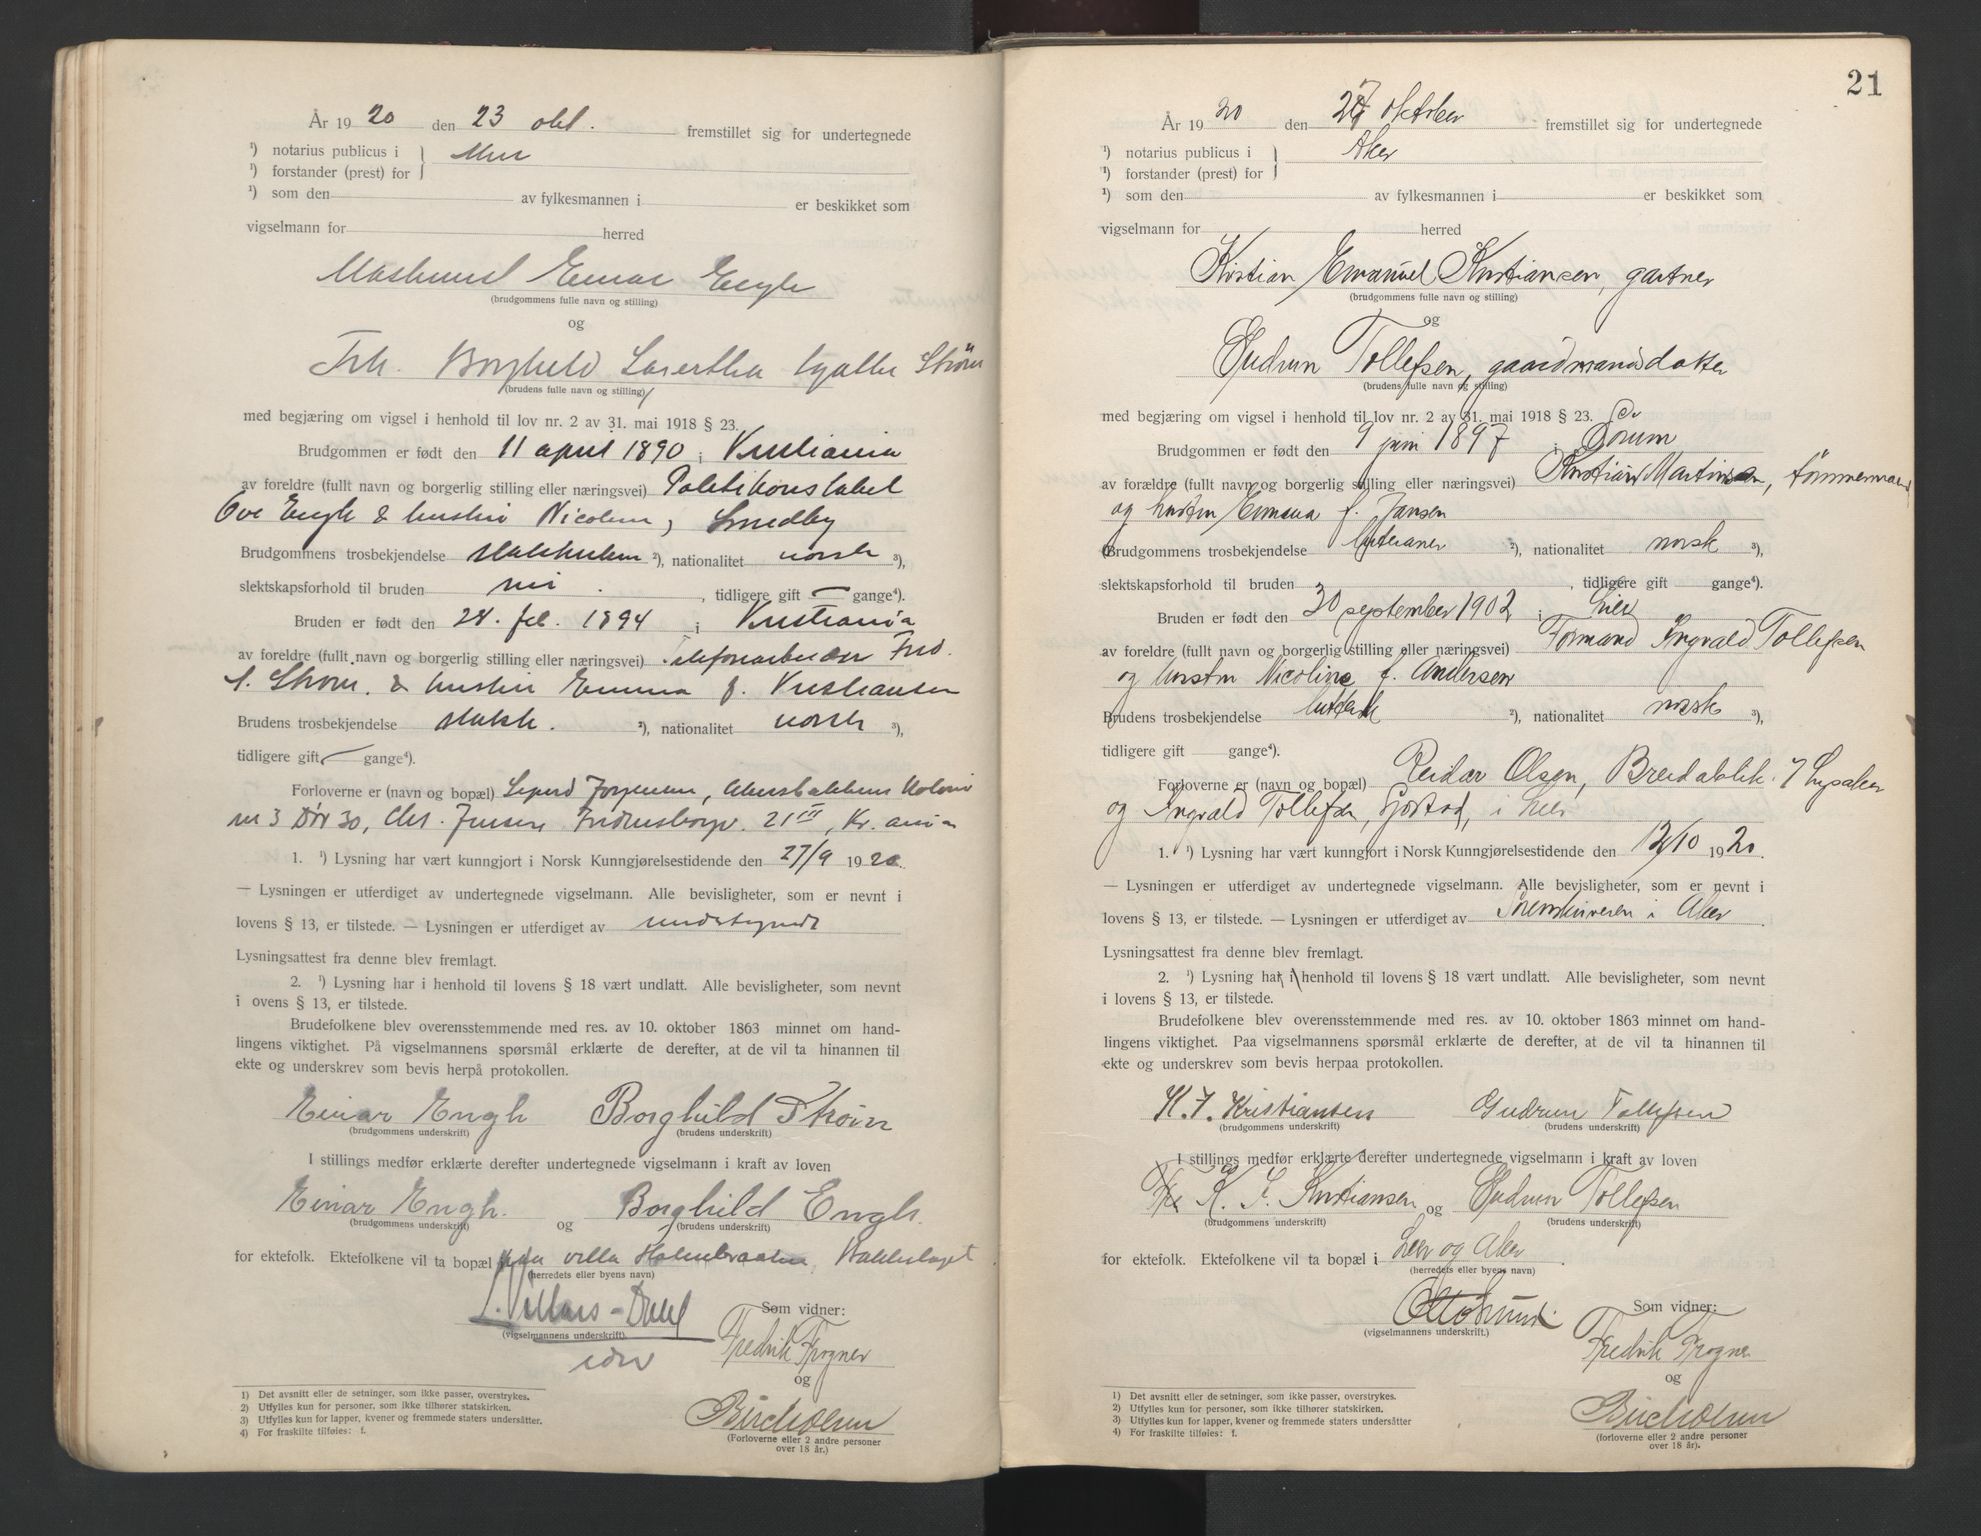 År 1920 den 23 okt. fremstillet sig for undertegnede
¹) notarius publicus i } Aker
¹) forstander (prest) for
¹) som den av fylkesmannen i er beskikket som
vigselmann for herred
Einar Engh
(brudgommens fulle navn og stilling)
og
Frk. Borghild Strøm
(brudens fulle navn og stilling)
med begjæring om vigsel i henhold til lov nr. 2 av 31. mai 1918 § 23.
Brudgommen er født den 11 april 1890 i Kristiania
av foreldre (fullt navn og borgerlig stilling eller næringsvei) Politikonstabel
Ove Engh & hustru Nicoline, Smedby
Brudgommens trosbekjendelse statskirken ²), nationalitet norsk ³),
slektskapsforhold til bruden nei . , tidligere gift — gange⁴).
Bruden er født den 28. feb. 1894 i Kristiania
av foreldre (fullt navn og borgerlig stilling eller næringsvei) Telefonarbeider Fred.
Strøm. & hustru Emma f. Kristiansen
Brudens trosbekjendelse statsk. ²), nationalitet norsk ³),
tidligere gift — gange⁴).
Forloverne er (navn og bopæl) Sigurd Jørgensen, Akersbakkens Koloni
nr 3 Dør 30, Chr. Jensen 21 III, Kr.ania
1. ¹) Lysning har vært kunngjort i Norsk Kunngjørelsestidende den 27/9 1920.
— Lysningen er utferdiget av undertegnede vigselmann. Alle bevisligheter, som er nevnt i
lovens § 13, er tilstede. — Lysningen er utferdiget av undertegnede
Lysningsattest fra denne blev fremlagt.
2. ¹) Lysning har i henhold til lovens § 18 vært undlatt. Alle bevisligheter, som nevnt
i ovens § 13, er tilstede.
Brudefolkene blev overensstemmende med res. av 10. oktober 1863 minnet om hand-
lingens viktighet. På vigselmannens spørsmål erklærte de derefter, at de vil ta hinannen til
ekte og underskrev som bevis herpå protokollen.
Einar Engh Borghild Strøm
(brudgommens underskrift) (brudens underskrift)
I stillings medfør erklærte derefter undertegnede vigselmann i kraft av loven
Einar Engh. og Borghild Engh.
(brudgommens underskrift) (brudens underskrift)
for ektefolk. Ektefolkene vil ta bopæl paa villa Holmbraaten, Bakkehaget
(herredets eller byens navn)
Som vidner:
(vigselmannens underskrift).
Fredrik Trogner
og
(Forloverne eller 2 andre personer
over 18 år.)
1) Det avsnitt eller de setninger, som ikke passer, overstrykes.
2) Utfylles kun for personer, som ikke tilhører statskirken.
3) Utfylles kun for lapper, kvener og fremmede staters undersåtter.
4) For fraskilte tilføies: f.
21
År 1920 den 27 oktober fremstillet sig for undertegnede
¹) notarius publicus i } Aker
¹) forstander (prest) for
¹) som den av fylkesmannen i er beskikket som
vigselmann for herred
Kristian Emanuel Kristiansen, gartner
(brudgommens fulle navn og stilling)
og
Gudrun Tollefsen, gaardmandsdatter
(brudens fulle navn og stilling)
med begjæring om vigsel i henhold til lov nr. 2 av 31. mai 1918 § 23.
Brudgommen er født den 9 juni 1897 i Sørum
av forældre (fullt navn og borgerlig stilling eller næringsvei) Kristian Martinsen, tømmermand
og hustru Emma f. Jansen
Brudgommens trosbekjendelse luteraner ²), nationalitet norsk ³),
slektskapsforhold til bruden , tidligere gift gange⁴).
Bruden er født den 30 september 1902 i Lier
av foreldre (fullt navn og borgerlig stilling eller næringsvei) Formand Ingvald Tollefsen
og hustru Nicoline f. Andersen
Brudens trosbekjendelse luthersk ²), nationalitet norsk ³),
tidligere gift gange⁴).
Forloverne er (navn og bopæl) Reidar Olsen, Breidablik. Lysaker
og Ingvald Tollefsen, Gjøstad, i Lier
1. ¹) Lysning har vært kunngjort i Norsk Kunngjørelsestidende den 12/10 1920.
— Lysningen er utferdiget av undertegnede vigselmann. Alle bevisligheter, som er nevnt i
lovens § 13, er tilstede. — Lysningen er utferdiget av Sorenskriveren i Aker
Lysningsattest fra denne blev fremlagt.
2. ¹) Lysning har i henhold til lovens § 18 vært undlatt. Alle bevisligheter, som nevnt
i lovens § 13, er tilstede.
Brudefolkene blev overensstemmende med res. av 10. oktober 1863 minnet om hand-
lingens viktighet. Paa vigselmannens spørsmål erklærte de derefter, at de vil ta hinannen til
ekte og underskrev som bevis herpaa protokollen.
K. E. Kristiansen Gudrun Tollefsen
(brudgommens underskrift) (brudens underskrift)
I stillings medfør erklærte derefter undertegnede vigselmann i kraft av loven
K. E. Kristiansen og Gudrun Tollefsen
(brudgommens underskrift) (brudens underskrift)
for ektefolk. Ektefolkene vil ta bopæl i Lier og Aker
(herredets eller byens navn)
Som vidner:
(vigselmannens underskrift.)
Fredrik Trogner
og
(forloverne eller 2 andre personer
over 18 år).
1) Det avsnitt eller de setninger, som ikke passer, overstrykes.
2) Utfylles kun for personer, som ikke tilhører statskirken.
3) Utfylles kun for lapper, kvener og fremmede staters undersåtter
4) For fraskilte tilføies: f.